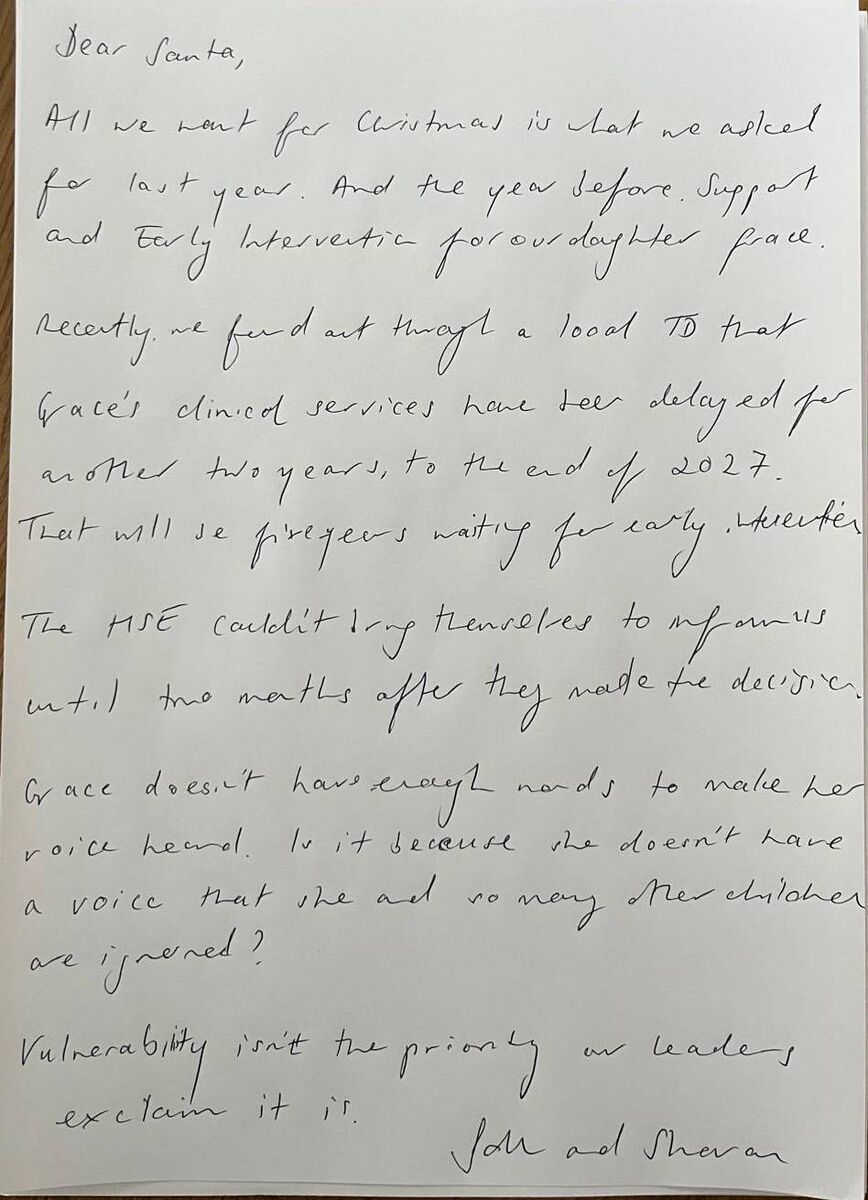 Dear Santa,
All we want for Christmas is what we asked
for last year. And the year before. Support
and Early Intervention for our daughter Grace.
Recently, we found out through a local TD that
Grace's clinical services have been delayed for
another two years, to the end of 2027.
That will be five years waiting for early intervention
The HSE couldn't bring themselves to inform us
until two months after they made the decision.
Grace doesn't have enough words to make her
voice heard. Is it because she doesn't have
a voice that she and so many other children
are ignored?
Vulnerability isn't the priority our leaders
exclaim it is.
and Sharon